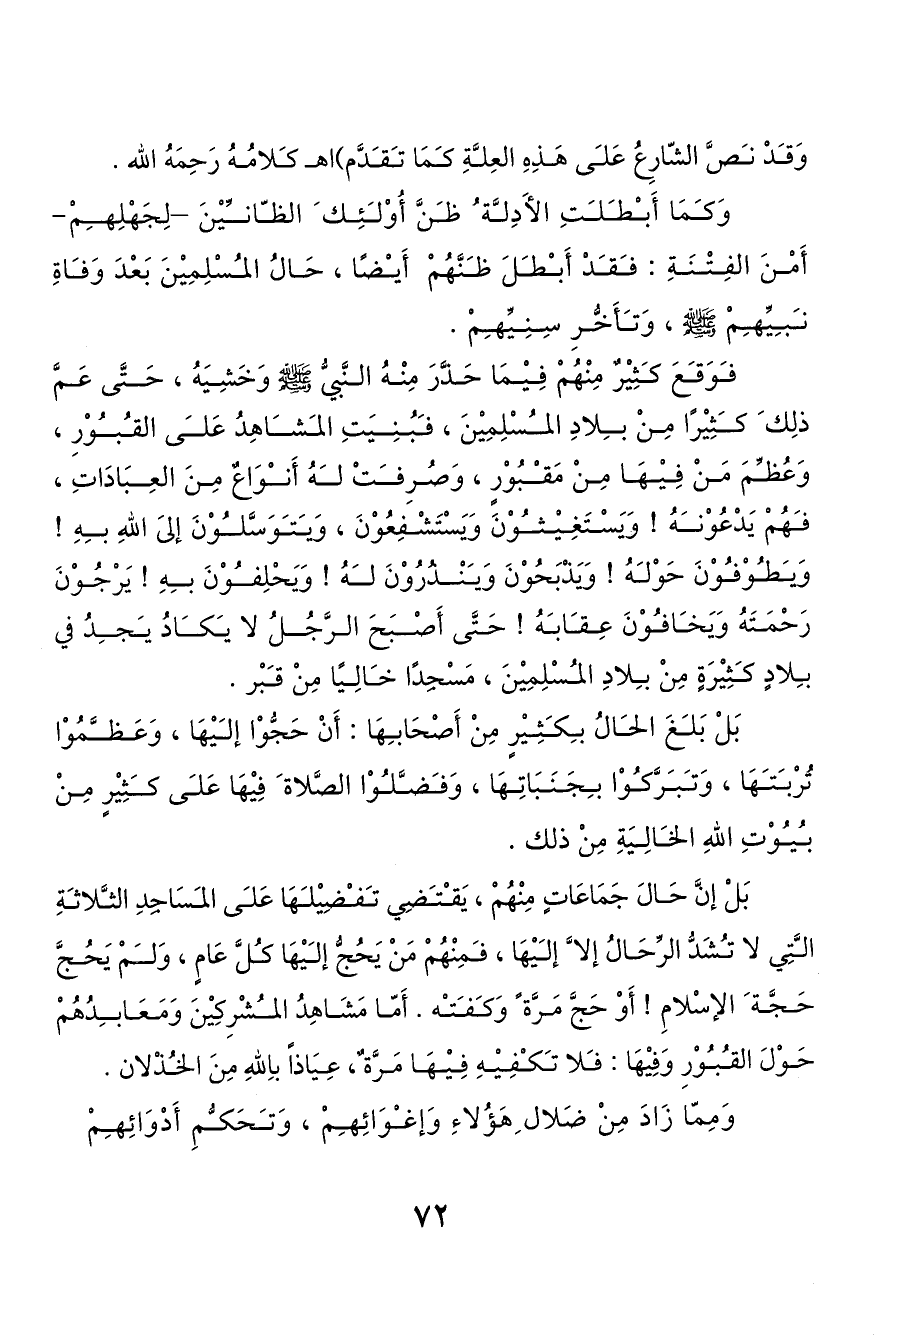 وَقَدْ نَصَّ الشَّارِعُ عَلَى هَذِهِ العِلَّةِ كَمَا تَقَدَّم)اهـ كَلَامُهُ رَحِمَهُ الله .
وَكَمَا أَبْطَلَتِ الأَدِلَّةُ ظَنَّ أُوْلَئِكَ الظَّانِّيْنَ –لِجَهْلِهِمْ–
أَمْنَ الفِتْنَةِ : فَقَدْ أَبْطَلَ ظَنَّهُمْ أَيْضًا ، حَالُ المُسْلِمِيْنَ بَعْدَ وَفَاةِ
نَبِيِّهِمْ ﷺ ، وَتَأَخُّرِ سِنِيِّهِمْ .
فَوَقَعَ كَثِيْرٌ مِنْهُمْ فِيْمَا حَذَّرَ مِنْهُ النَّبِيُّ ﷺ وَخَشِيَهُ ، حَتَّى عَمَّ
ذلِكَ كَثِيْرًا مِنْ بِلَادِ المُسْلِمِيْنَ ، فَبُنِيَتِ المَشَاهِدُ عَلَى القُبُوْرِ ،
وَعُظِّمَ مَنْ فِيْهَا مِنْ مَقْبُوْرٍ ، وَصُرِفَتْ لَهُ أَنْوَاعٌ مِنَ العِبَادَاتِ ،
فَهُمْ يَدْعُوْنَهُ ! وَيَسْتَغِيْثُوْنَ وَيَسْتَشْفِعُوْنَ ، وَيَتَوَسَّلُوْنَ إِلَى اللهِ بِهِ !
وَيَطُوْفُوْنَ حَوْلَهُ ! وَيَذْبَحُوْنَ وَيَنْذُرُوْنَ لَهُ ! وَيَحْلِفُوْنَ بِهِ ! يَرْجُوْنَ
رَحْمَتَهُ وَيَخَافُوْنَ عِقَابَهُ ! حَتَّى أَصْبَحَ الرَّجُلُ لَا يَكَادُ يَجِدُ فِي
بِلَادٍ كَثِيْرَةٍ مِنْ بِلَادِ المُسْلِمِيْنَ ، مَسْجِدًا خَالِيًا مِنْ قَبْرٍ .
بَلْ بَلَغَ الحَالُ بِكَثِيْرٍ مِنْ أَصْحَابِهَا : أَنْ حَجُّوْا إِلَيْهَا ، وَعَظَّمُوْا
تُرْبَتَهَا ، وَتَبَرَّكُوْا بِجَنَبَاتِهَا ، وَفَضَّلُوْا الصَّلَاةَ فِيْهَا عَلَى كَثِيْرٍ مِنْ
بُيُوْتِ اللهِ الخَالِيَةِ مِنْ ذلِكَ .
بَلْ إِنَّ حَالَ جَمَاعَاتٍ مِنْهُمْ ، يَقْتَضِي تَفْضِيْلَهَا عَلَى المَسَاجِدِ الثَّلَاثَةِ
الَّتِي لَا تُشَدُّ الرِّحَالُ إِلَّا إِلَيْهَا ، فَمِنْهُمْ مَنْ يَحُجُّ إِلَيْهَا كُلَّ عَامٍ ، وَلَمْ يَحُجَّ
حَجَّةَ الإِسْلَامِ ! أَوْ حَجَّ مَرَّةً وَكَفَتْه . أَمَّا مَشَاهِدُ المُشْرِكِيْنَ وَمَعَابِدُهُمْ
حَوْلَ القُبُوْرِ وَفِيْهَا : فَلَا تَكْفِيْهِ فِيْهَا مَرَّةٌ، عِيَاذًا بِاللهِ مِنَ الخُذْلَان .
وَمِمَّا زَادَ مِنْ ضَلَالِ هَؤُلَاءِ وَإِغْوَائِهِمْ ، وَتَحَكُّمِ أَدْوَائِهِمْ
٧٢